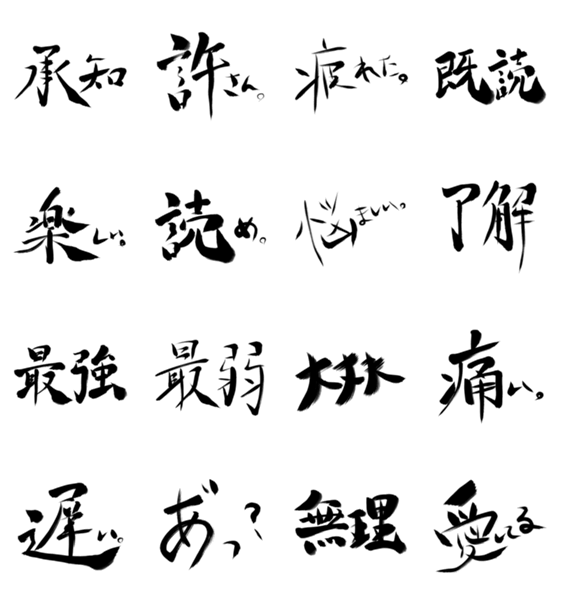 承知
許さん。
疲れた。
既読
楽しい。
読め。
悩ましい。
了解
最強
最弱
痛い。
遅い。
あ゛っ?
無理
愛してる